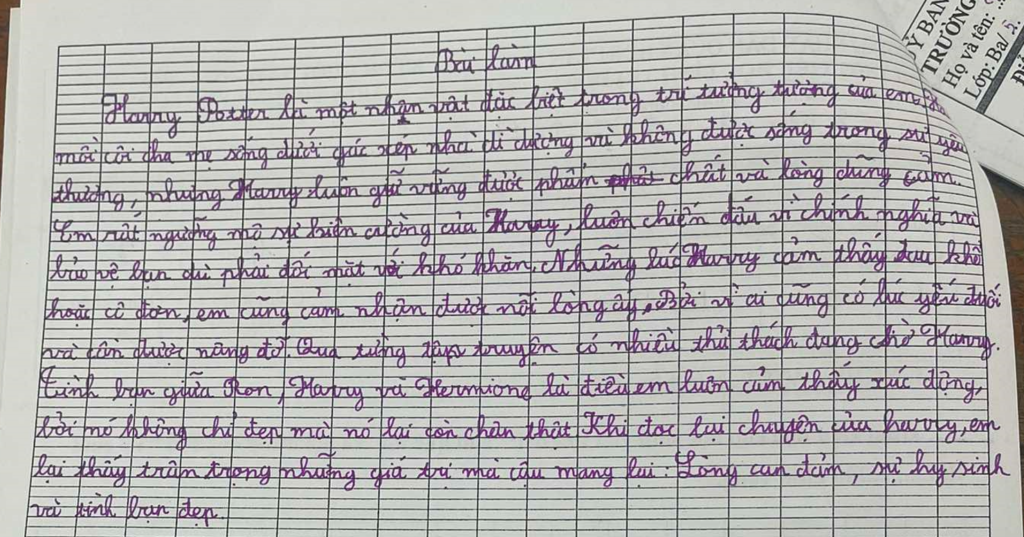 Bài làm
Harry Potter là một nhận vật đặc biệt trong trí tưởng tượng của em.
mồ côi cha mẹ sống dưới gác xép nhà dì dượng và không được sống trong sự yêu
thương, nhưng Harry luôn giữ vững được phẩm chất và lòng dũng cảm.
Em rất ngưỡng mộ sự kiên cường của Harry, luôn chiến đấu vì chính nghĩa và
bảo vệ bạn dù phải đối mặt với khó khăn. Những lúc Harry cảm thấy đau khổ
hoặc cô đơn, em cũng cảm nhận được nỗi lòng ấy. Bởi vì ai cũng có lúc yếu đuối
và cần được nâng đỡ. Qua từng tập truyện có nhiều thử thách đang chờ Harry.
Tình bạn giữa Ron, Harry và Hermione là điều em luôn cảm thấy xúc động,
bởi nó không chỉ đẹp mà nó lại còn chân thật Khi đọc lại chuyện của harry, em
lại thấy trân trọng những giá trị mà cậu mang lại: Lòng can đảm, sự hy sinh
và tình bạn đẹp.
Ỷ BAN
TRƯỜNG
Họ và tên:
Lớp: Ba/5